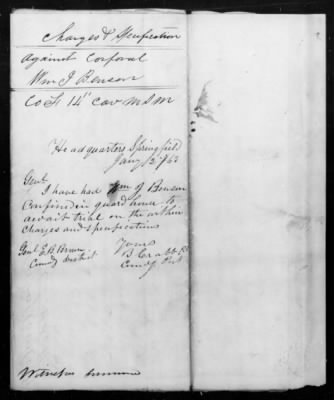 Charges & Specification
Against Corporal
Wm J Benson
Co F 14" Cav M S M
Headquarters Springfield
Jany 2 /63
Genl
I have had Wm J Benson
Confined in guard house to
await trial on the within
charges and specifications
Yours
Genl E. B. Brown
B Crabb
Comdg District
Comdg Post
Witnesses